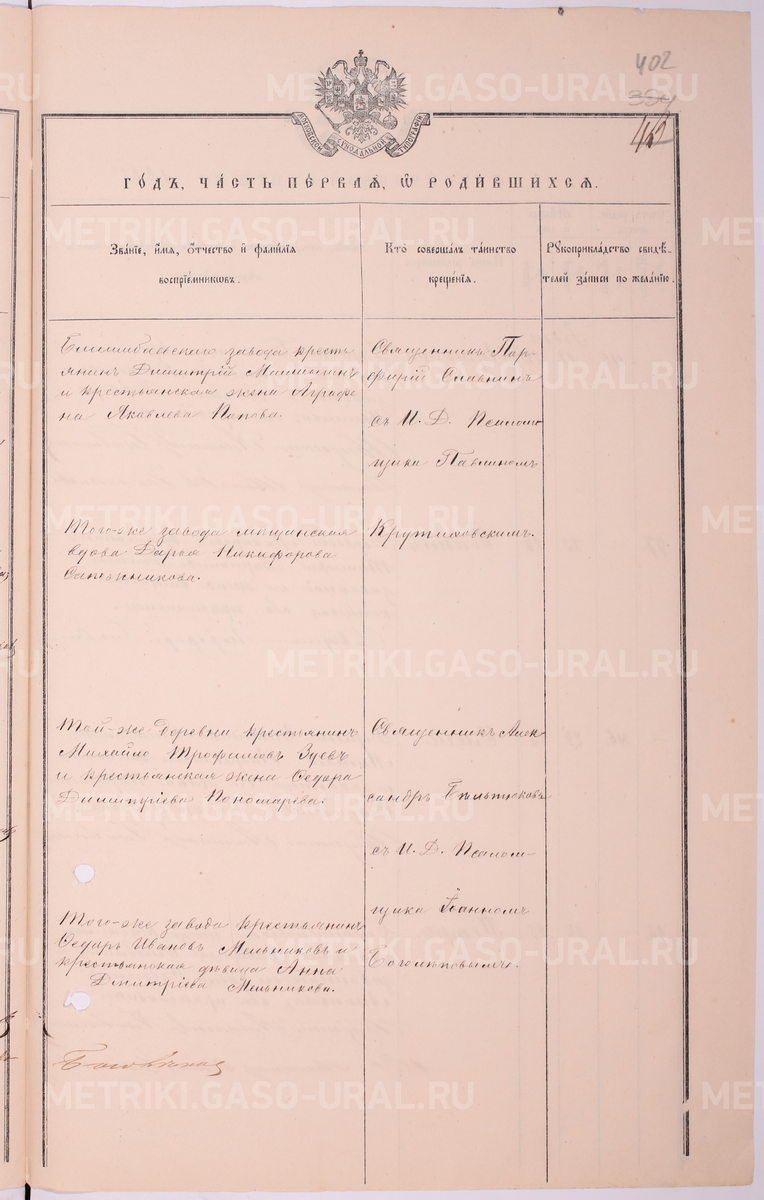 402
МОСКОВСКОЙ СѴНОДАЛЬНОЙ ТИПОГРАФІИ
ГОДЪ, ЧАСТЬ ПЕРВАЯ, Ѡ РОДИВШИХСЯ.
Званіе, имя, отчество и фамилія
воспріемниковъ.
Кто совершалъ таинство
крещенія.
Рукоприкладство свидѣ-
телей записи по желанію.
завода кресть
янинъ Димитрій
и крестьянская жена Аграфе
на Яковлева Попова.
Священникъ Пар-
фирій Славнинъ
съ И. Д. Псаломщ
щика Павлиномъ
Того-же завода мѣщанская
вдова Дарья Никифорова
Сапожникова.
Крутиховскимъ.
Той-же деревни крестьянинъ
Михайло Трофимовъ Зуевъ
и крестьянская жена Ѳедора
Димитріева Пономарева.
Священникъ Алек
сандръ
съ И. Д. Псалом-
щика Іоанномъ
Боголѣповымъ.
Того-же завода крестьянинъ
Ѳедоръ Ивановъ Мельниковъ и
крестьянская дѣвица Анна
Димитріева Мельникова.
METRIKI.GASO-URAL.RU